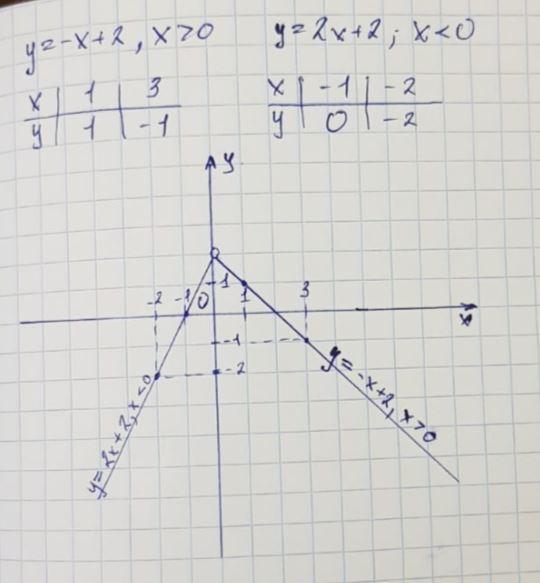 y=-x+2, x>0
y=2x+2; x<0
x | 1 | 3
y | 1 | -1
x | -1 | -2
y | 0 | -2
y
-2 -1 0 1 1 3
x
-1
-2
y=2x+2, x<0
y=-x+2, x>0